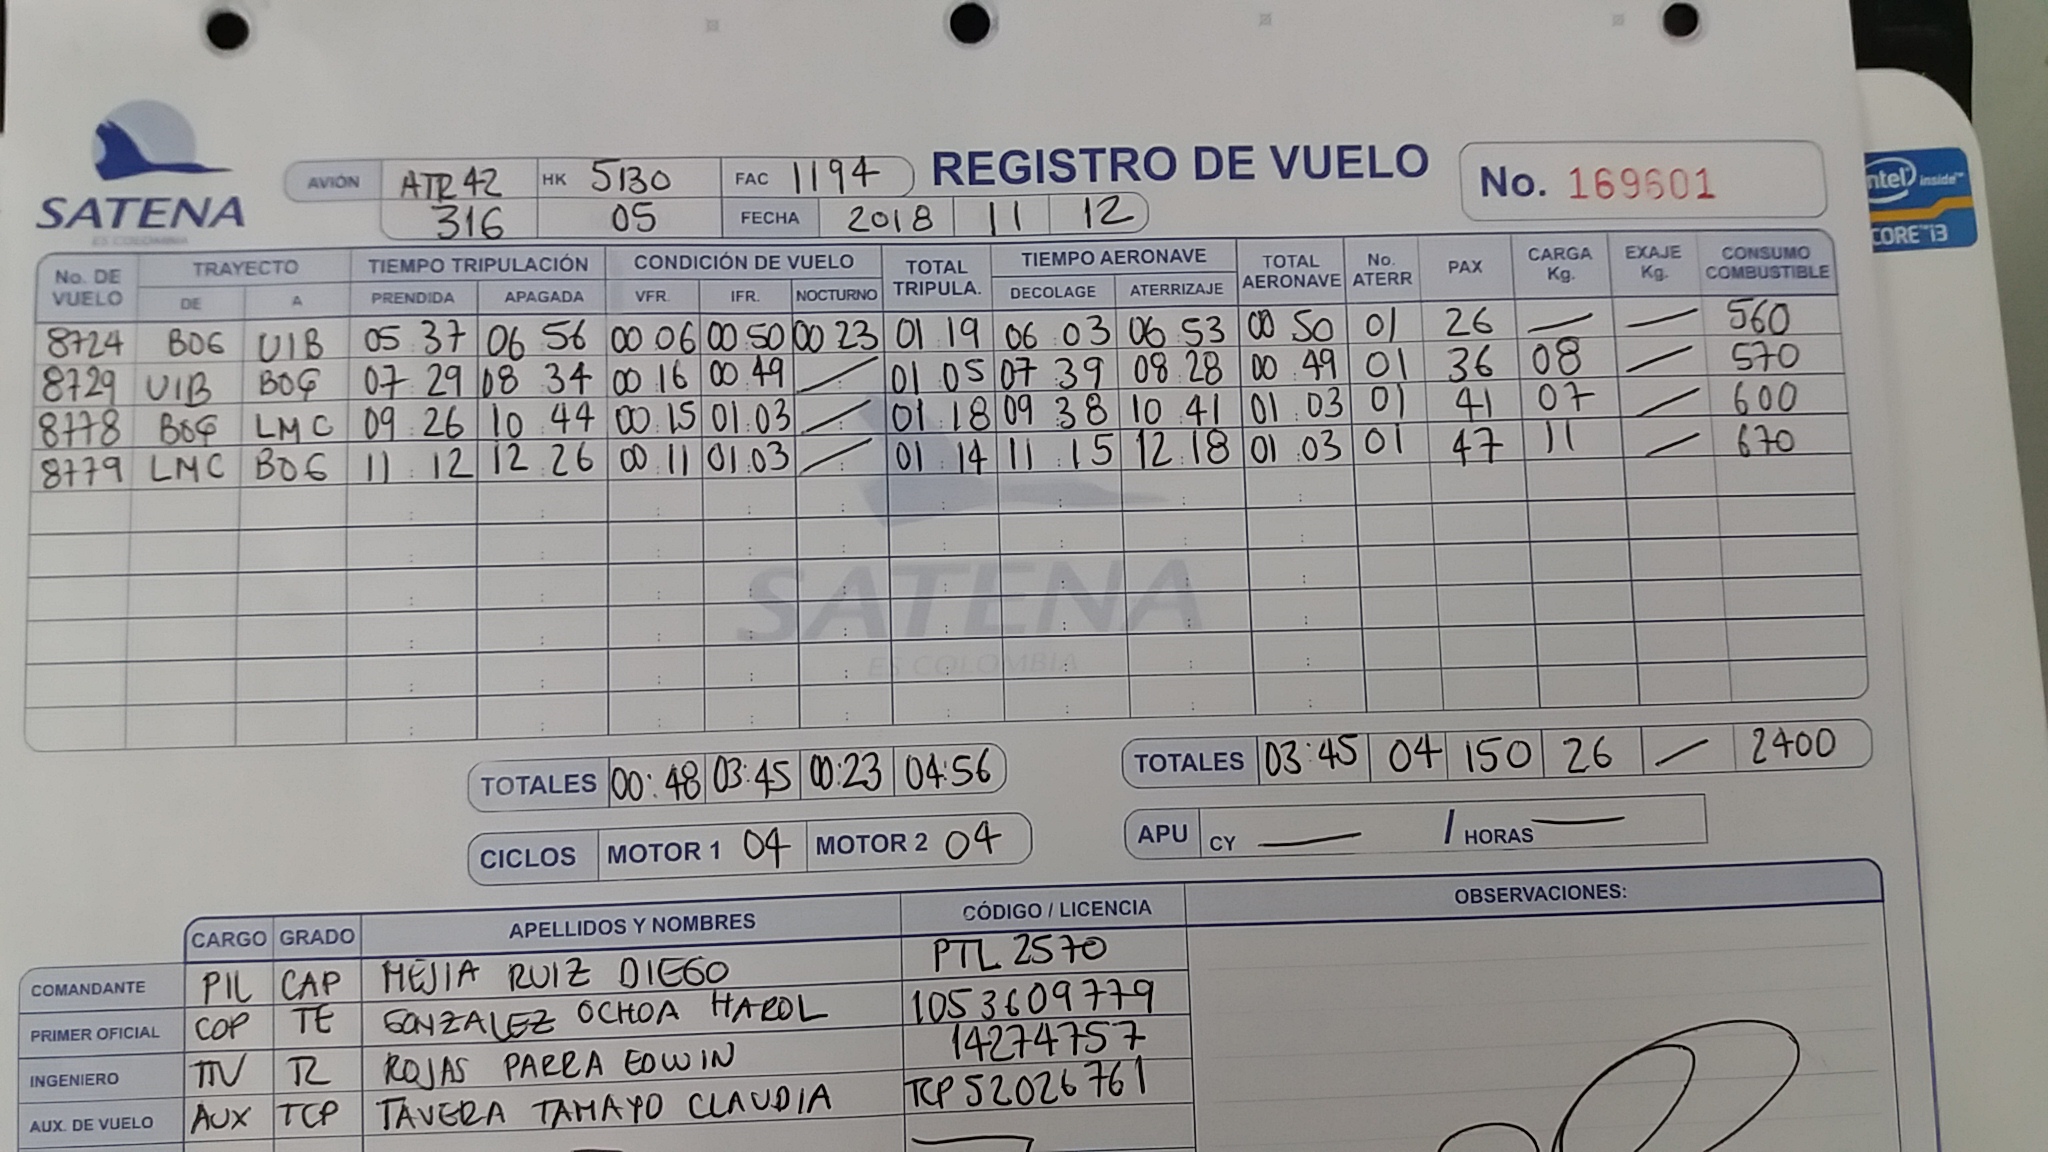 SATENA
ES COLOMBIA
AVIÓN ATR 42 HK 5130 FAC 1194
316 05 FECHA 2018 11 12
REGISTRO DE VUELO
No. 169601
intel inside™
CORE™ i3
No. DE VUELO TRAYECTO TIEMPO TRIPULACIÓN CONDICIÓN DE VUELO TOTAL TRIPULA. TIEMPO AERONAVE TOTAL AERONAVE No. ATERR PAX CARGA Kg. EXAJE Kg. CONSUMO COMBUSTIBLE
DE A PRENDIDA APAGADA VFR. IFR. NOCTURNO DECOLAGE ATERRIZAJE
8724 BOG UIB 05 37 06 56 00 06 00 50 00 23 01 19 06 03 06 53 00 50 01 26 — — 560
8729 UIB BOG 07 29 08 34 00 16 00 49 — 01 05 07 39 08 28 00 49 01 36 08 — 570
8778 BOG LMC 09 26 10 44 00 15 01 03 — 01 18 09 38 10 41 01 03 01 41 07 — 600
8779 LMC BOG 11 12 12 26 00 11 01 03 — 01 14 11 15 12 18 01 03 01 47 11 — 670
SATENA
ES COLOMBIA
TOTALES 00:48 03:45 00:23 04:56
TOTALES 03:45 04 150 26 — 2400
CICLOS MOTOR 1 04 MOTOR 2 04
APU CY — / HORAS —
CARGO GRADO APELLIDOS Y NOMBRES CÓDIGO / LICENCIA OBSERVACIONES:
COMANDANTE PIL CAP MEJIA RUIZ DIEGO PTL 2570
PRIMER OFICIAL COP TE GONZALEZ OCHOA HAROL 1053609779
INGENIERO TTV T2 ROJAS PARRA EDWIN 14274757
AUX. DE VUELO AUX TCP TAVERA TAMAYO CLAUDIA TCP 52026761